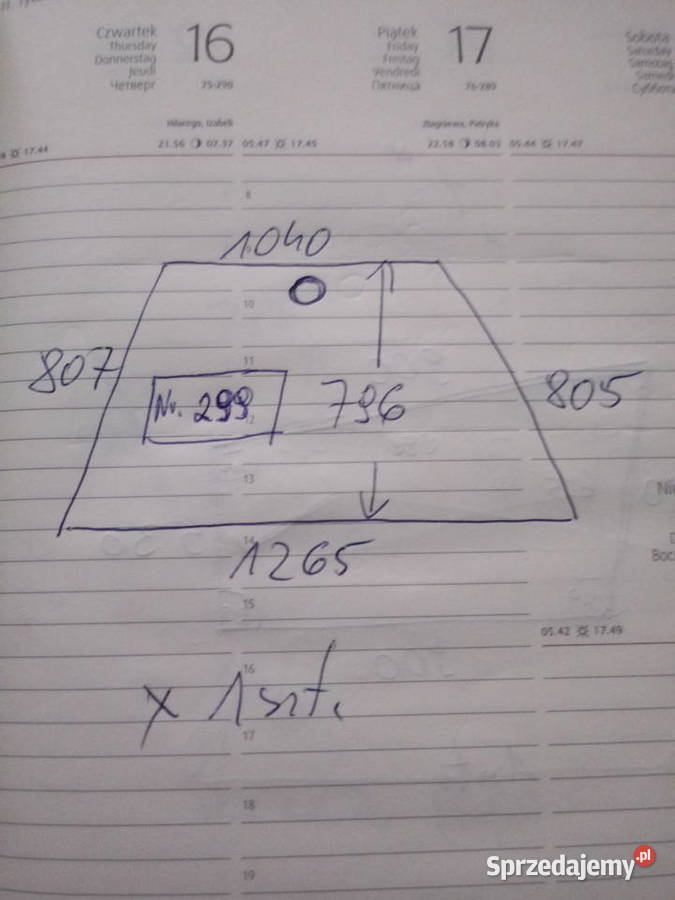 Czwartek 16
Thursday
Donnerstag
Jeudi
Четверг 75-290
Piątek 17
Friday
Freitag
Vendredi
Пятница 76-289
Sobota
Saturday
Samstag
Samedi
Суббота
Hilarego, Izabeli
Zbigniewa, Patryka
17.44
21.56 07.37 05.47 17.45
22.58 08.03 05.44 17.47
8
1040
10
807
11
Nr. 299
796
805
12
13
14
1265
15
05.42 17.49
16
x 1 szt.
17
18
19
Sprzedajemy.pl